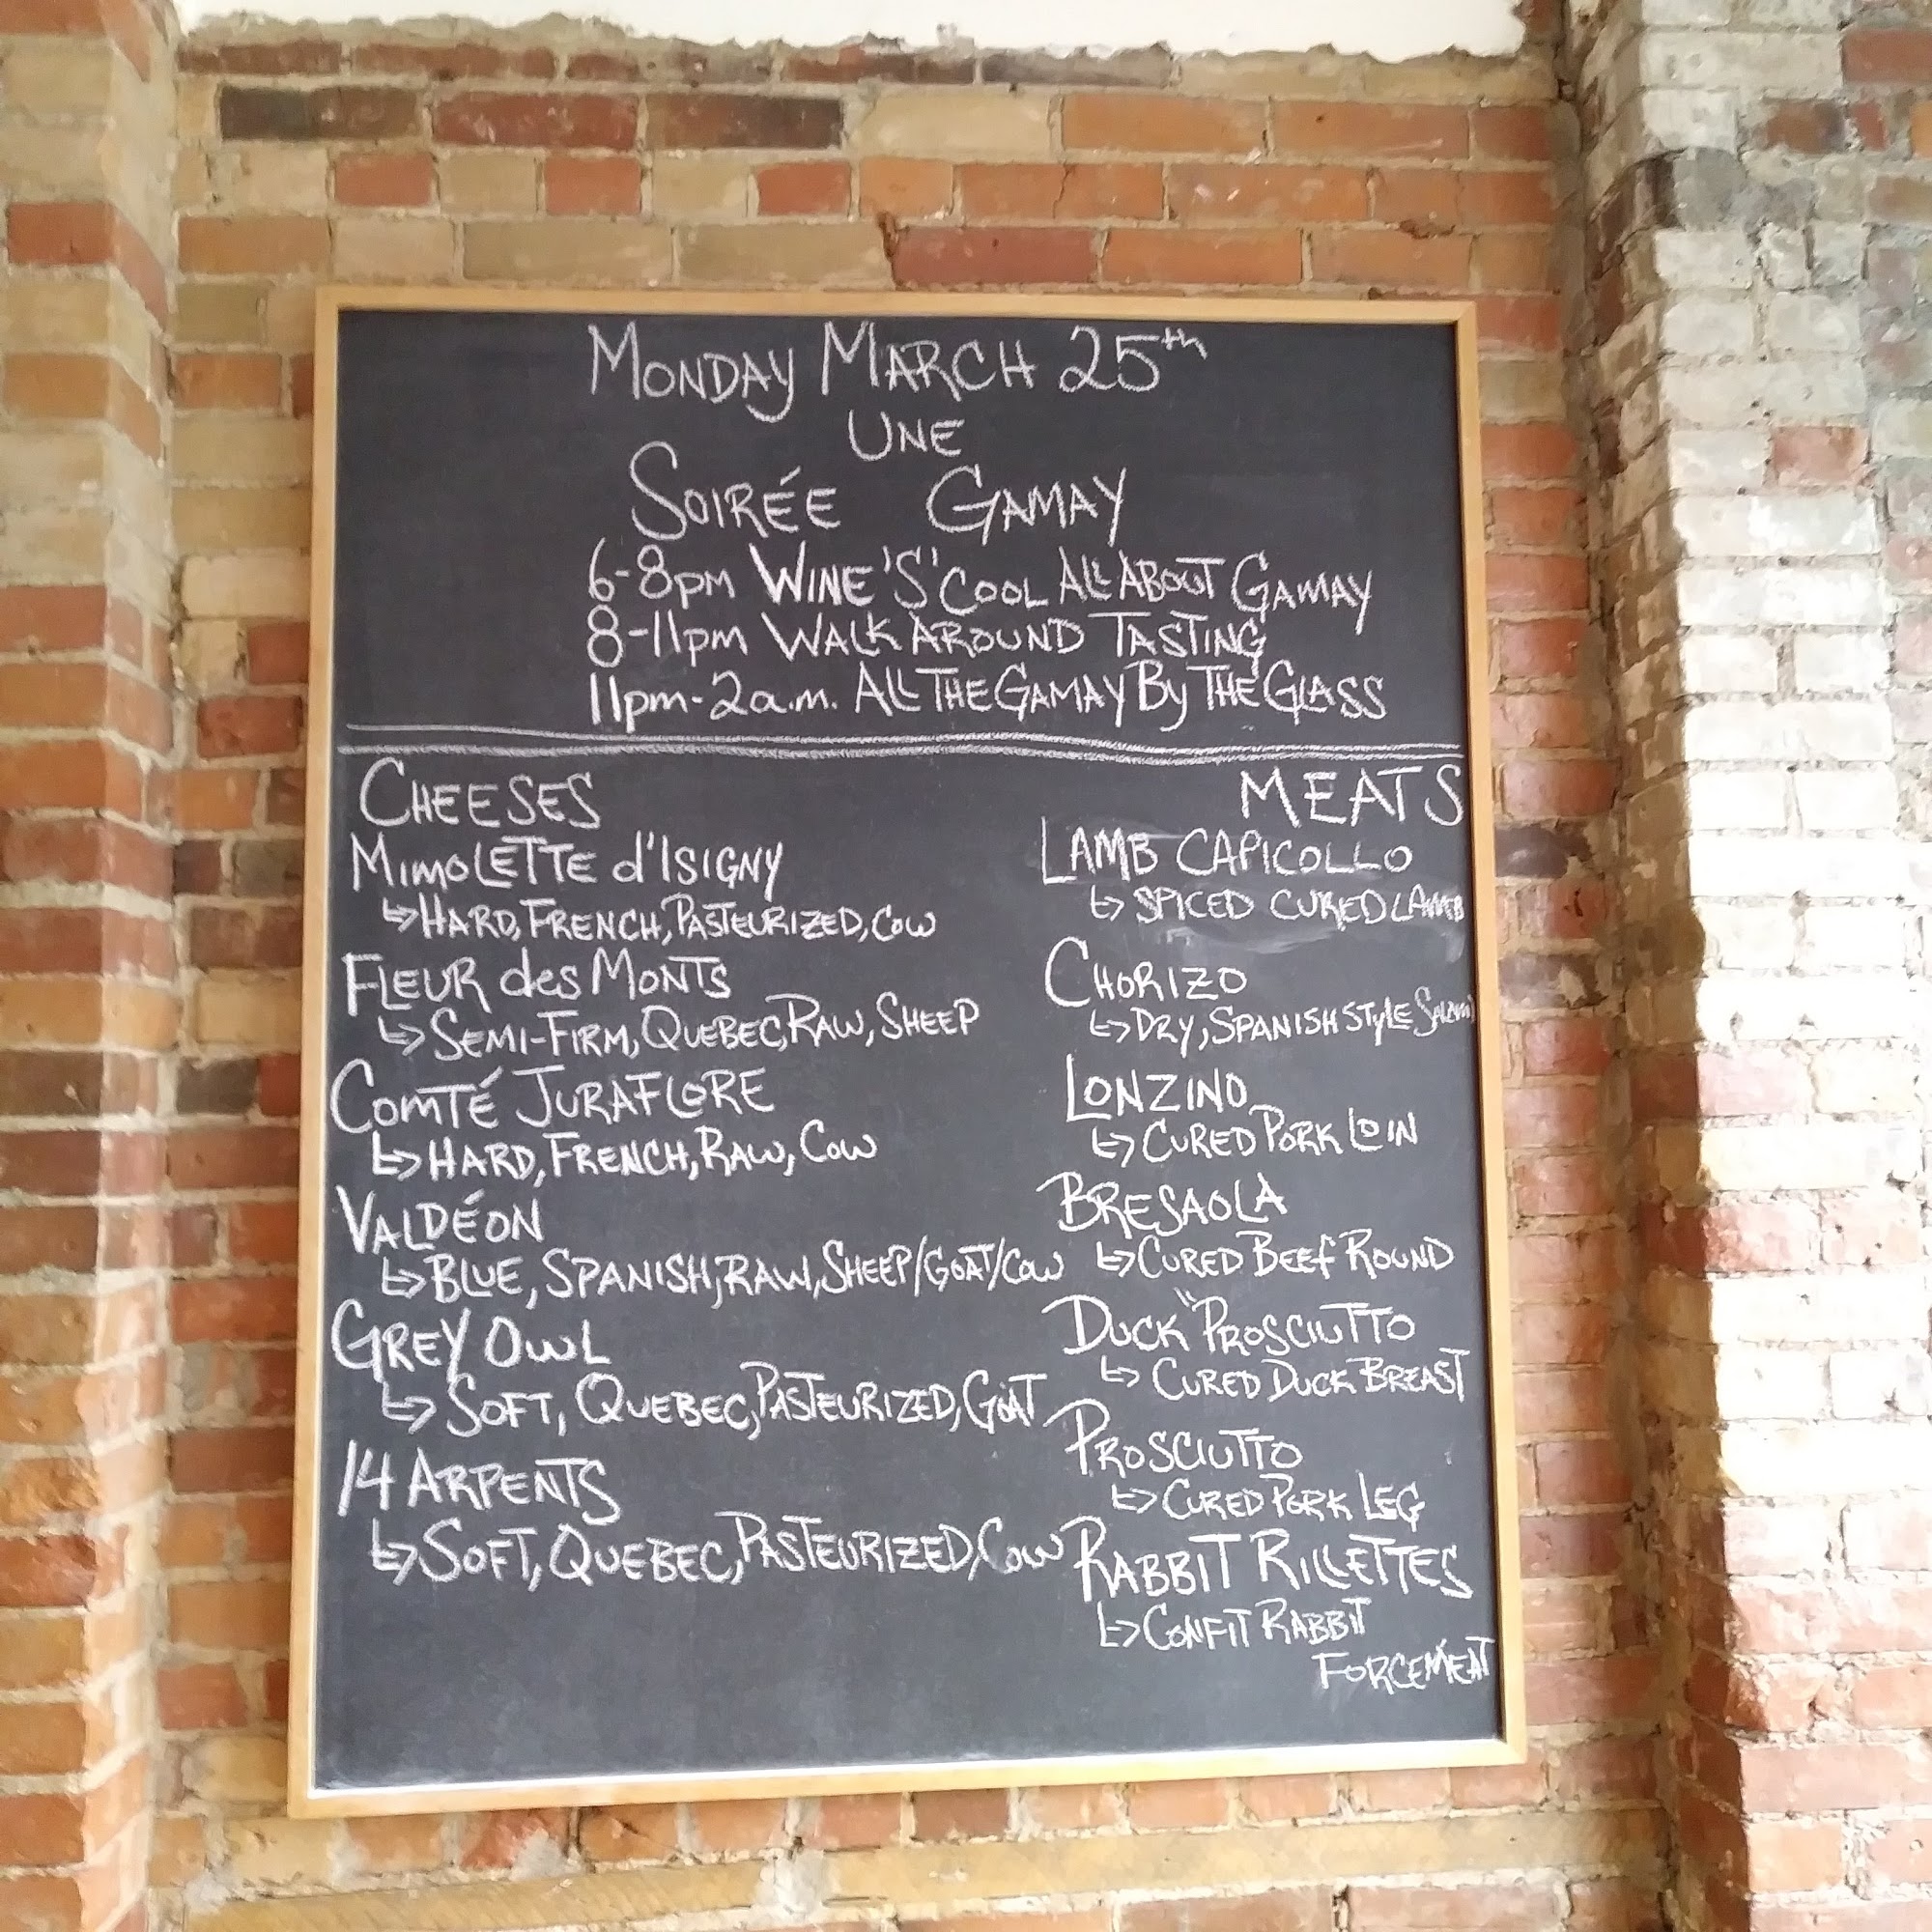 MONDAY MARCH 25th
UNE
SOIRÉE GAMAY
6-8pm WINE 'S' COOL ALL ABOUT GAMAY
8-11pm WALK AROUND TASTING
11pm-2a.m. ALL THE GAMAY BY THE GLASS
CHEESES
MIMOLETTE d'ISIGNY
↳ HARD, FRENCH, PASTEURIZED, COW
FLEUR des MONTS
↳ SEMI-FIRM, QUEBEC, RAW, SHEEP
COMTÉ JURAFLORE
↳ HARD, FRENCH, RAW, COW
VALDÉON
↳ BLUE, SPANISH, RAW, SHEEP/GOAT/COW
GREY OWL
↳ SOFT, QUEBEC, PASTEURIZED, GOAT
14 ARPENTS
↳ SOFT, QUEBEC, PASTEURIZED, COW
MEATS
LAMB CAPICOLLO
↳ SPICED CURED LAMB
CHORIZO
↳ DRY, SPANISH STYLE SALAMI
LONZINO
↳ CURED PORK LOIN
BRESAOLA
↳ CURED BEEF ROUND
DUCK "PROSCIUTTO
↳ CURED DUCK BREAST
PROSCIUTTO
↳ CURED PORK LEG
RABBIT RILLETTES
↳ CONFIT RABBIT
FORCEMEAT